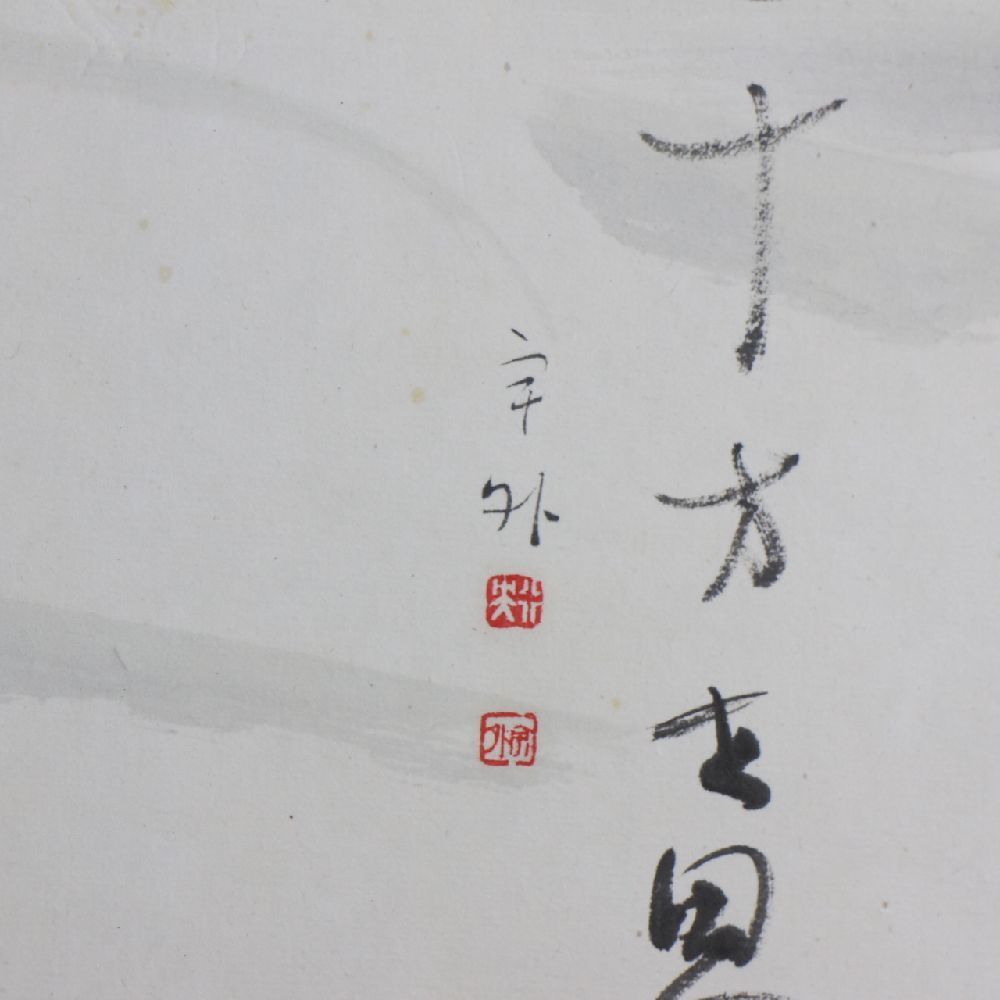 十方世界
宇外